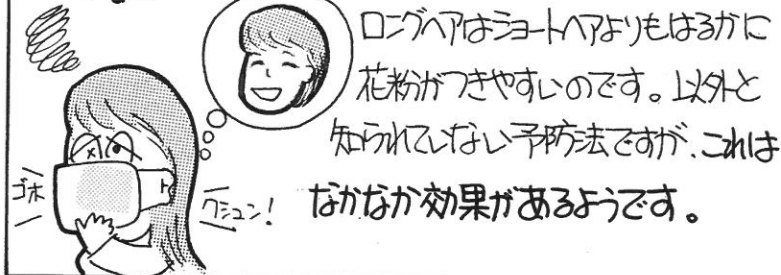 ロングヘアはショートヘアよりもはるかに
花粉がつきやすいのです。以外と
知られていない予防法ですが、これは
なかなか効果があるようです。
ゴホ
クシュン!